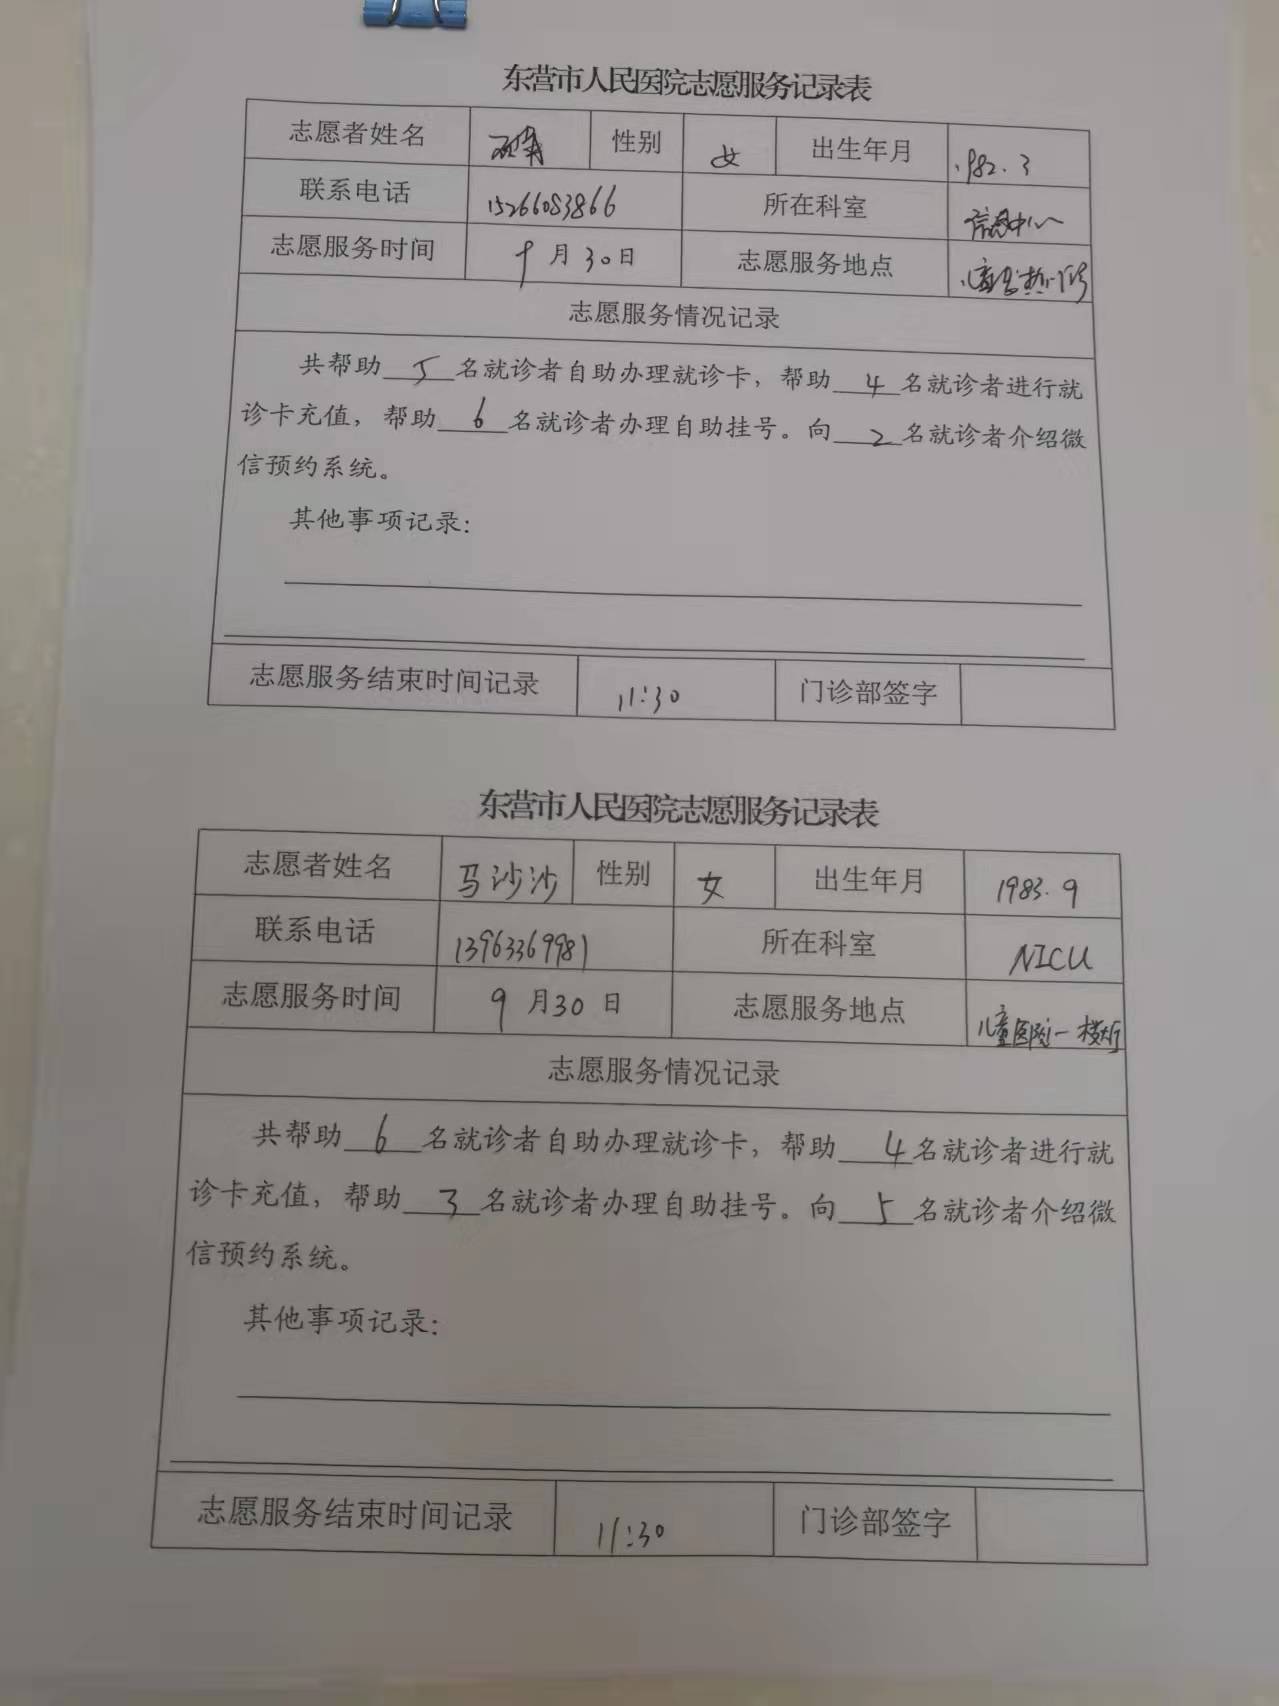 东营市人民医院志愿服务记录表
志愿者姓名 性别 女 出生年月 1982.3
联系电话 15266083866 所在科室 信息中心
志愿服务时间 9月30日 志愿服务地点 儿童发热门诊
志愿服务情况记录
共帮助5名就诊者自助办理就诊卡，帮助4名就诊者进行就
诊卡充值，帮助6名就诊者办理自助挂号。向2名就诊者介绍微
信预约系统。
其他事项记录：
志愿服务结束时间记录 11:30 门诊部签字
东营市人民医院志愿服务记录表
志愿者姓名 马沙沙 性别 女 出生年月 1983.9
联系电话 13963369981 所在科室 NICU
志愿服务时间 9月30日 志愿服务地点 儿童医院一楼大厅
志愿服务情况记录
共帮助6名就诊者自助办理就诊卡，帮助4名就诊者进行就
诊卡充值，帮助3名就诊者办理自助挂号。向5名就诊者介绍微
信预约系统。
其他事项记录：
志愿服务结束时间记录 11:30 门诊部签字